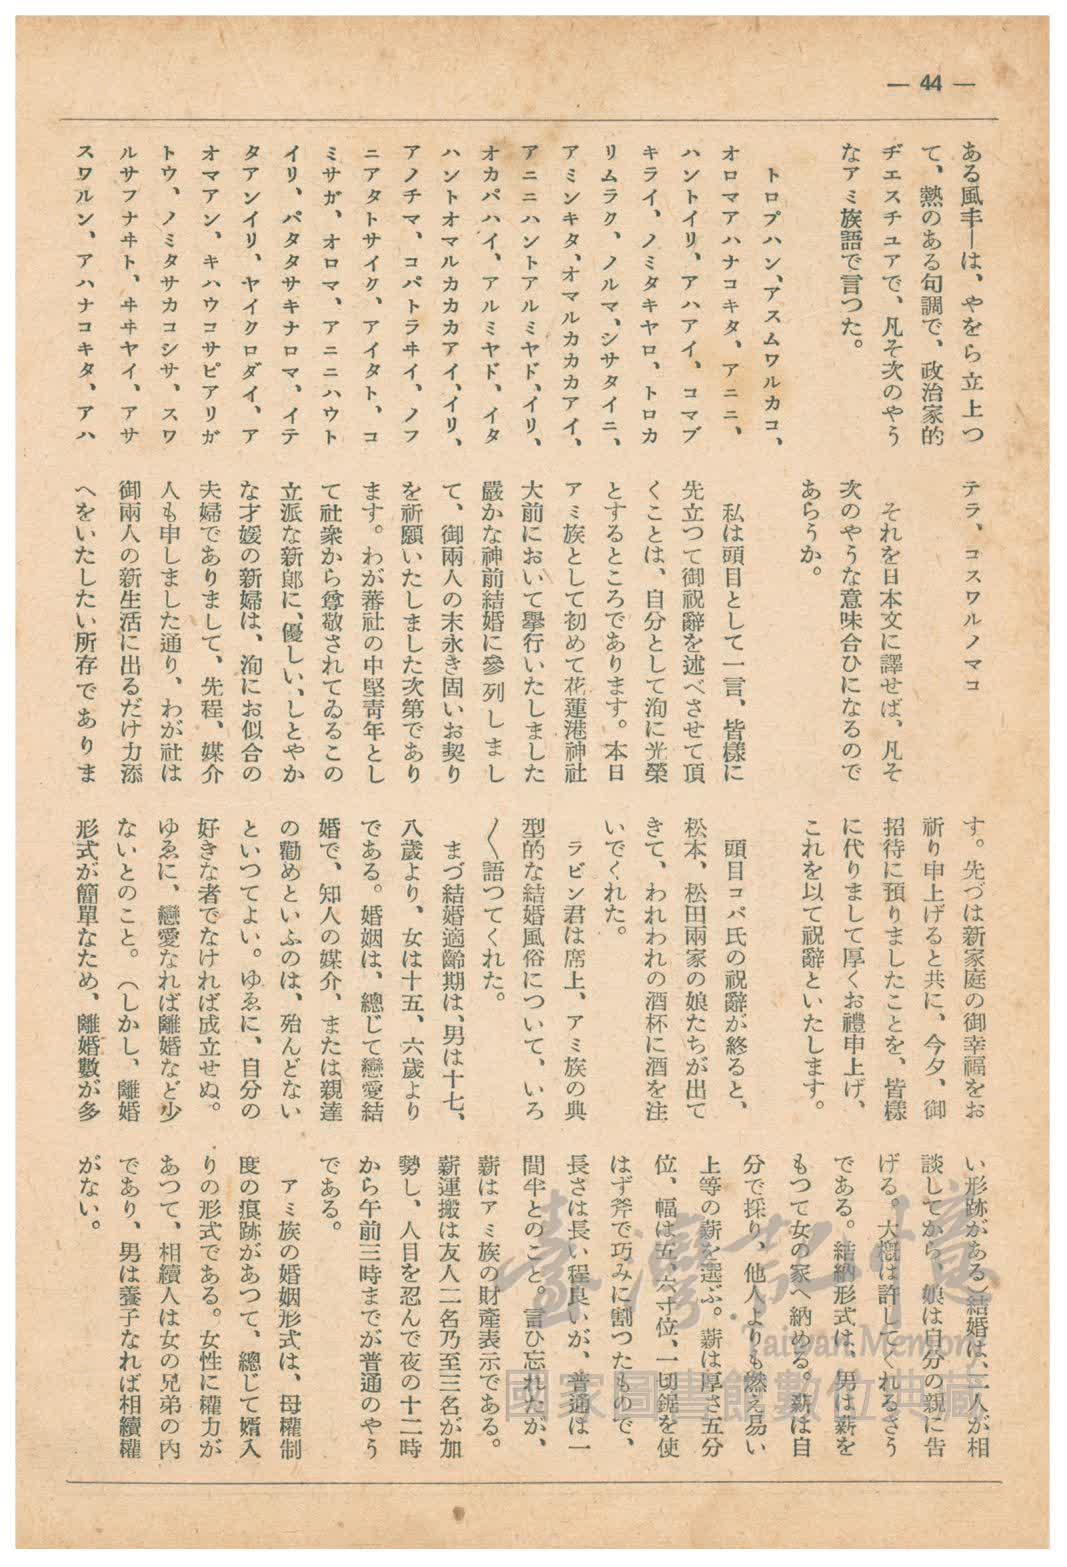 — 44 —
ある風丰—は、やをら立上つ
て、熱のある句調で、政治家的
ヂエスチユアで、凡そ次のやう
なアミ族語で言つた。
トロプハン、アスムワルカコ、
オロマアハナコキタ、アニニ、
ハントイリ、アハアイ、コマブ
キライ、ノミタキヤロ、トロカ
リムラク、ノルマ、シサタイニ、
アミンキタ、オマルカカカアイ、
アニニハントアルミヤド、イリ、
オカパハイ、アルミヤド、イタ
ハントオマルカカカアイ、イリ、
アノチマ、コパトラヰイ、ノフ
ニアタトサイク、アイタト、コ
ミサガ、オロマ、アニニハウト
イリ、パタタサキナロマ、イテ
タアンイリ、ヤイクロダイ、ア
オマアン、キハウコサピアリガ
トウ、ノミタサカコシサ、スワ
ルサフナヰト、ヰヰヤイ、アサ
スワルン、アハナコキタ、アハ
テラ、コスワルノマコ
それを日本文に譯せば、凡そ
次のやうな意味合ひになるので
あらうか。
私は頭目として一言、皆樣に
先立つて御祝辭を述べさせて頂
くことは、自分として洵に光榮
とするところであります。本日
アミ族として初めて花蓮港神社
大前において擧行いたしました
嚴かな神前結婚に參列しまし
て、御兩人の末永き固いお契り
を祈願いたしました次第であり
ます。わが蕃社の中堅靑年とし
て社衆から尊敬されてゐるこの
立派な新郞に、優しい、しとやか
な才媛の新婦は、洵にお似合の
夫婦でありまして、先程、媒介
人も申しました通り、わが社は
御兩人の新生活に出るだけ力添
へをいたしたい所存でありま
す。先づは新家庭の御幸福をお
祈り申上げると共に、今夕、御
招待に預りましたことを、皆樣
に代りまして厚くお禮申上げ、
これを以て祝辭といたします。
頭目コパ氏の祝辭が終ると、
松本、松田兩家の娘たちが出て
きて、われわれの酒杯に酒を注
いでくれた。
ラビン君は席上、アミ族の典
型的な結婚風俗について、いろ
〱語つてくれた。
まづ結婚適齡期は、男は十七、
八歲より、女は十五、六歲より
である。婚姻は、總じて戀愛結
婚で、知人の媒介、または親達
の勸めといふのは、殆んどない
といつてよい。ゆゑに、自分の
好きな者でなければ成立せぬ。
ゆゑに、戀愛なれば離婚など少
ないとのこと。（しかし、離婚
形式が簡單なため、離婚數が多
い形跡がある）結婚は、二人が相
談してから、娘は自分の親に告
げる。大槪は許してくれるさう
である。結納形式は、男は薪を
もつて女の家へ納める。薪は自
分で採り、他人よりも燃え易い
上等の薪を選ぶ。薪は厚さ五分
位、幅は五、六寸位、一切鋸を使
はず斧で巧みに割つたもので、
長さは長い程良いが、普通は一
間半とのこと。言ひ忘れたが、
薪はアミ族の財產表示である。
薪運搬は友人二名乃至三名が加
勢し、人目を忍んで夜の十二時
から午前三時までが普通のやう
である。
アミ族の婚姻形式は、母權制
度の痕跡があつて、總じて婿入
りの形式である。女性に權力が
あつて、相續人は女の兄弟の內
であり、男は養子なれば相續權
がない。
臺灣記憶
Taiwan Memory
國家圖書館數位典藏